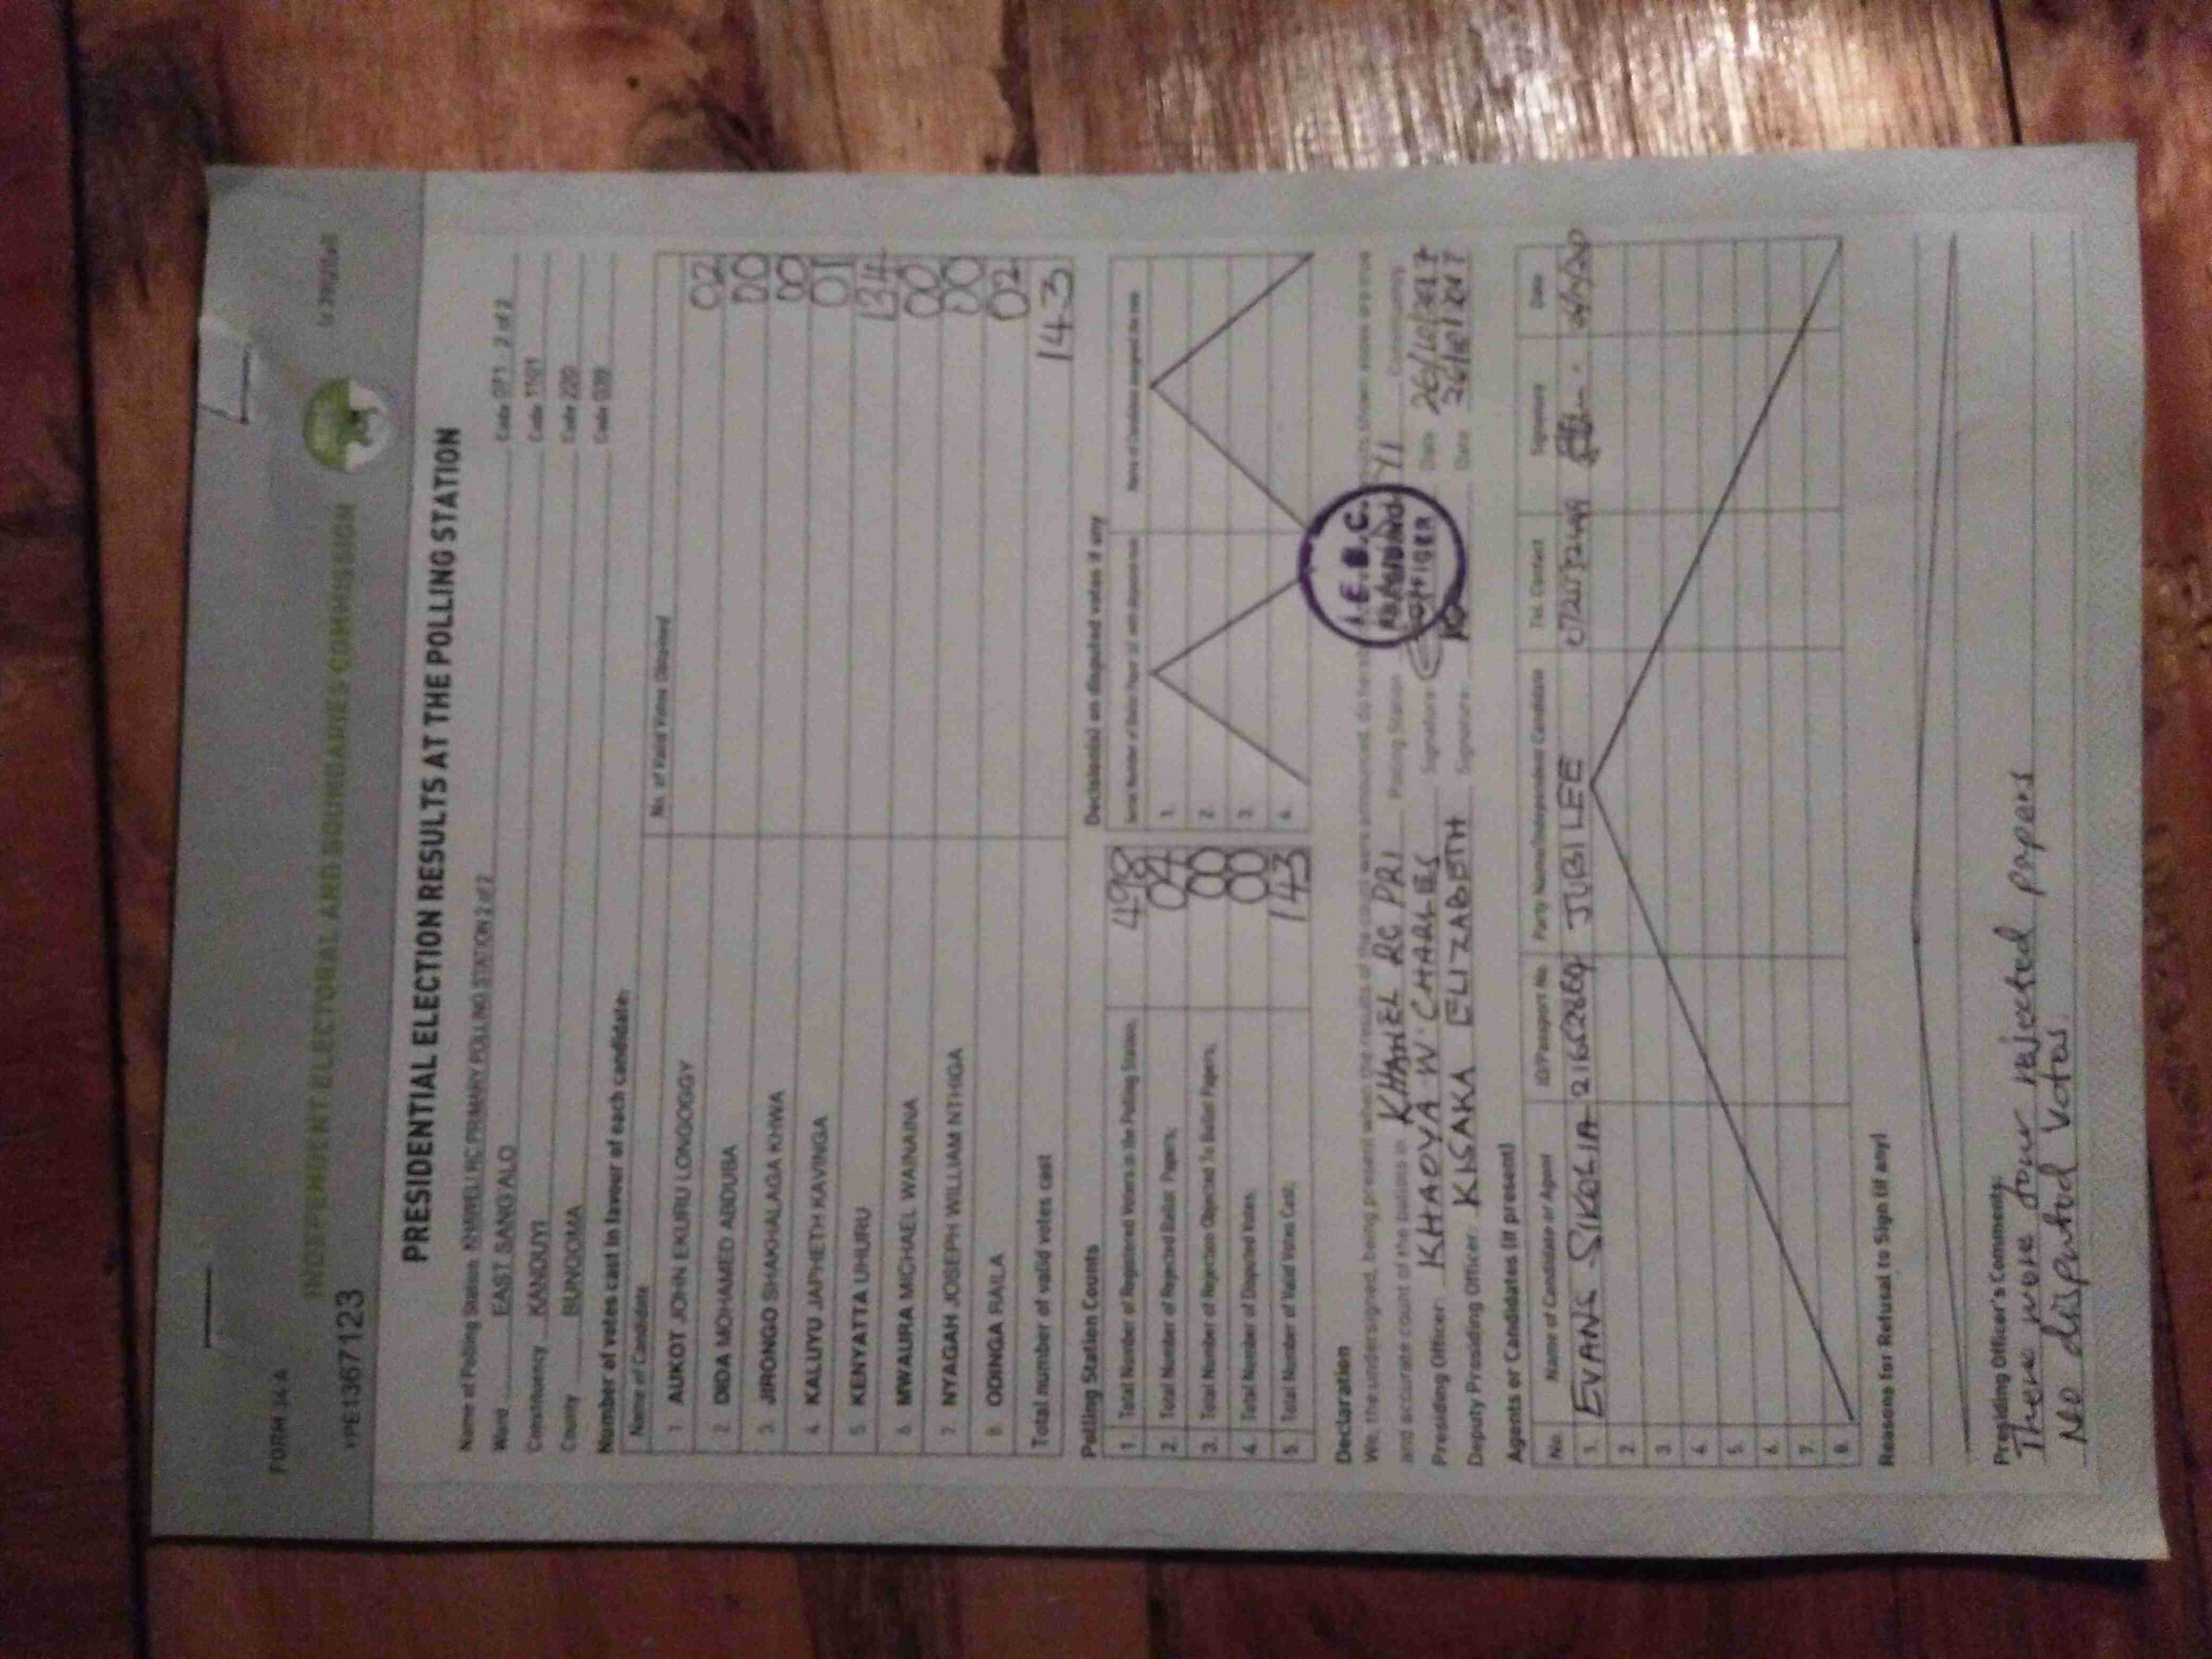 FORM 34 A
INDEPENDENT ELECTORAL AND BOUNDARIES COMMISSION
PE1367123
PRESIDENTIAL ELECTION RESULTS AT THE POLLING STATION
Name of Polling Station KHAWELI RC PRIMARY POLLING STATION 2 of 2 Code 071 2 of 2
Ward EAST SANG'ALO Code 1101
Constituency KANDUYI Code 220
County BUNGOMA Code 039
Number of votes cast in favour of each candidate:
Name of Candidate No. of Valid Votes Obtained
1 AUKOT JOHN EKURU LONGOGGY 02
2. DIDA MOHAMED ABDUBA 00
3. JIRONGO SHAKHALAGA KHWA 00
4 KALUYU JAPHETH KAVINGA 01
5. KENYATTA UHURU
6 MWAURA MICHAEL WAINAINA 00
7. NYAGAH JOSEPH WILLIAM NTHIGA 00
8 ODINGA RAILA 02
Total number of valid votes cast 143
Polling Station Counts
1. Total Number of Registered Voters in the Polling Station; 498
2. Total Number of Rejected Ballot Papers; 04
3. Total Number of Rejection Objected To Ballot Papers; 00
4. Total Number of Disputed Votes; 00
5. Total Number of Valid Votes Cast; 143
Decision(s) on disputed votes if any
1.
2.
3.
4.
Declaration
We, the undersigned, being present when the results of the count were announced, do hereby shown above are true
and accurate count of the ballots in KHAWEL RC PRI Polling Station Constituency
Presiding Officer: KHAOYA W. CHARLES Signature Date 26/10/2017
Deputy Presiding Officer: KISAKA ELIZABETH Signature Date 26/10/2017
I.E.B.C.
OFFICER
Agents or Candidates (if present)
No. Name of Candidate or Agent ID/Passport No. Party Name/Independent Candidate Tel. Contact Signature Date
1. EVANS SIKOLIA JUBILEE
2.
3.
4.
5.
6.
7.
8.
Reasons for Refusal to Sign (if any)
Presiding Officer's Comments
There were four rejected papers
No disputed votes.